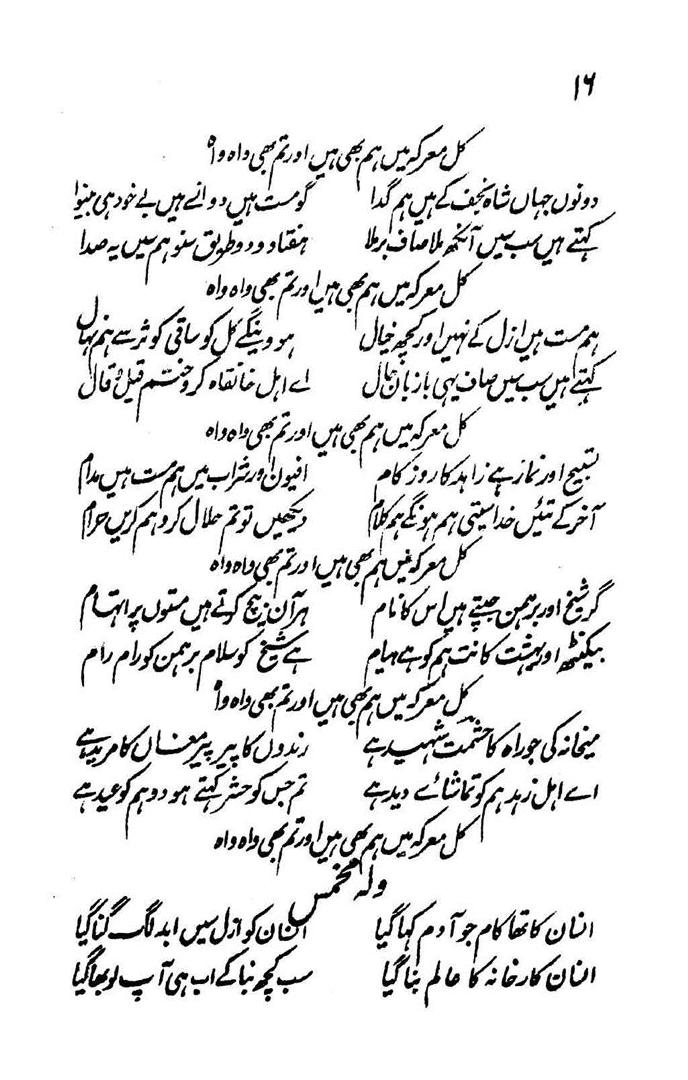 ۱۶
کل معرکہ میں ہم بھی ہیں اور تم بھی واہ واہ
دونوں جہاں شاہ نجف کے ہیں ہم گدا گومست ہیں دوانے ہیں بے خود ہی بنیوا
کہتے ہیں سب سیں آنکھ ملا صاف برملا ہفتاد و دو طریق سنو ہم سیں یہ صدا
کل معرکہ میں ہم بھی ہیں اور تم بھی واہ واہ
ہم مست ہیں ازل کے نہیں اور کچھ خیال ہووینگے کل کو ساقی کوثر سے ہم نہال
کہتے ہیں سب سیں صاف یہی با زبان حال اے اہل خانقاہ کرو ختم قیل و قال
کل معرکہ میں ہم بھی ہیں اور تم بھی واہ واہ
تسبیح اور نماز ہے زاہد کا روز کام افیون اور شراب میں ہم مست ہیں مدام
آخر کے تئیں خدا ستی ہم ہونگے ہم کلام دیکھیں تو تم حلال کرو ہم کریں حرام
کل معرکہ میں ہم بھی ہیں اور تم بھی واہ واہ
گر شیخ اور برہمن جپتے ہیں اس کا نام ہر آن نچ کرتے ہیں مستوں پر اتہام
بیکنٹھ اور بہشت کا نت ہم کو ہے پیام ہے شیخ کو سلام برہمن کو رام رام
کل معرکہ میں ہم بھی ہیں اور تم بھی واہ واہ
میخانہ کی جو راہ کا حشمت شہید ہے رندوں کا پیر پیر مغاں کا مرید ہے
اے اہل زہد ہم کو تماشائے دید ہے تم جس کو حشر کہتے ہو دو ہم کو عید ہے
کل معرکہ میں ہم بھی ہیں اور تم بھی واہ واہ
ولہ مخمس
انسان کا تھا کام جو آدم کہا گیا انسان کو ازل سیں ابد لگ گنا گیا
انسان کارخانہ کا عالم بنا گیا سب کچھ بنا کے اب ہی آپ لوبھا گیا